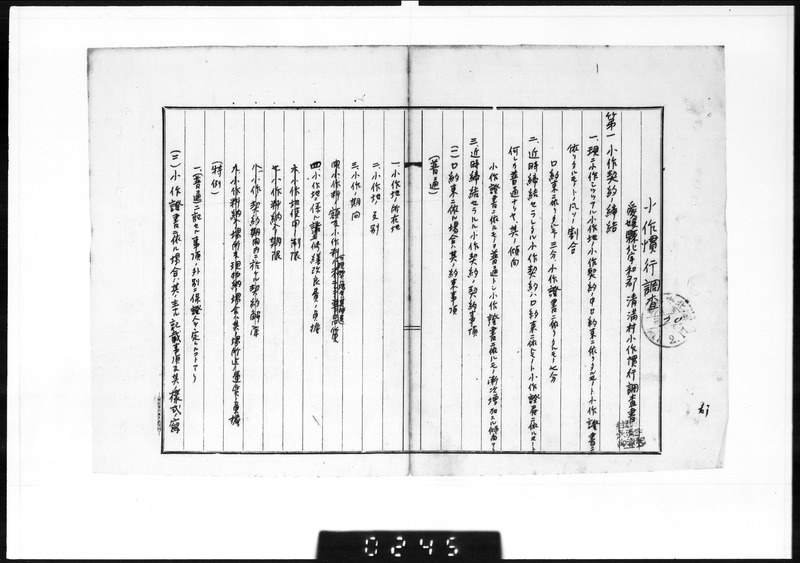 小作慣行調査
愛媛縣北宇和郡清満村小作慣行調査書
第一 小作契約ノ締結
一、現ニ小作シツツアル小作地ノ小作契約中口約束ニ依リタルモノト小作證書ニ
依リタルモノト凡ソノ割合
口約束ニ依リタルモノ三分 小作證書ニ依リタルモノ七分
二、近時締結セラルル小作契約ハ口約束ニ依ルモノト小作證書ニ依ルモノト
何レカ普通ナリヤ、其ノ傾向
小作證書ニ依ルモノヲ普通トシ小作證書ニ依ルモノ漸次増加スル傾向アリ
三、近時締結セラルル小作契約ノ契約事項
(一)口約束ニ依ル場合ハ其ノ約束事項
(普通)
一、小作地ノ所在地
二、小作地ノ反別
三、小作ノ期間
四、小作地ノ修繕改良費ノ負擔
六、小作地使用ノ制限
七、小作料納入期限
八、小作契約期間内ニ於ケル契約解除
九、小作料納入場所
(特例)
一、(普通)ニ記セル事項ノ外別ニ保證人ヲ定ムルコトアリ
(二)小作證書ニ依ル場合ハ其ノ主ナル記載事項及其ノ様式ノ寫
0245